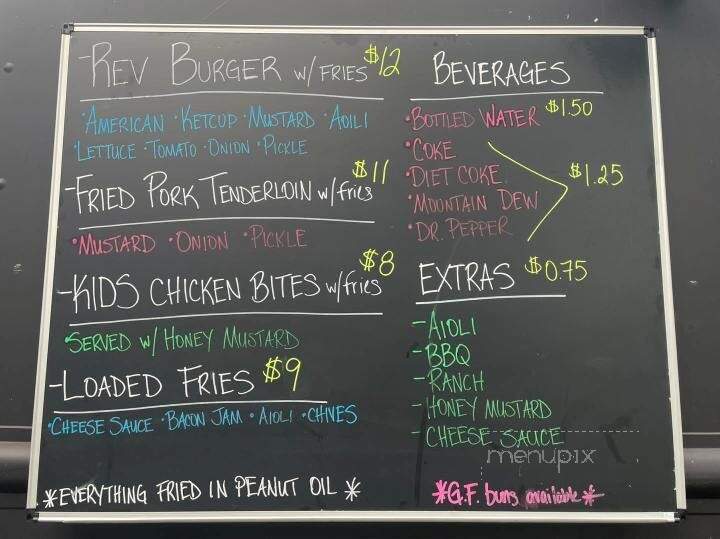 -REV BURGER w/ FRIES $12
·AMERICAN ·KETCUP ·MUSTARD ·AOILI
·LETTUCE ·TOMATO ·ONION ·PICKLE
-FRIED PORK TENDERLOIN w/ fries $11
·MUSTARD ·ONION ·PICKLE
-KIDS CHICKEN BITES w/fries $8
·SERVED w/ HONEY MUSTARD
-LOADED FRIES $9
·CHEESE SAUCE ·BACON JAM ·AIOLI ·CHIVES
*EVERYTHING FRIED IN PEANUT OIL*
BEVERAGES
·BOTTLED WATER $1.50
·COKE
·DIET COKE
·MOUNTAIN DEW
·DR. PEPPER
$1.25
EXTRAS $0.75
-AIOLI
-BBQ
-RANCH
-HONEY MUSTARD
-CHEESE SAUCE
menupix
*G.F. buns available*